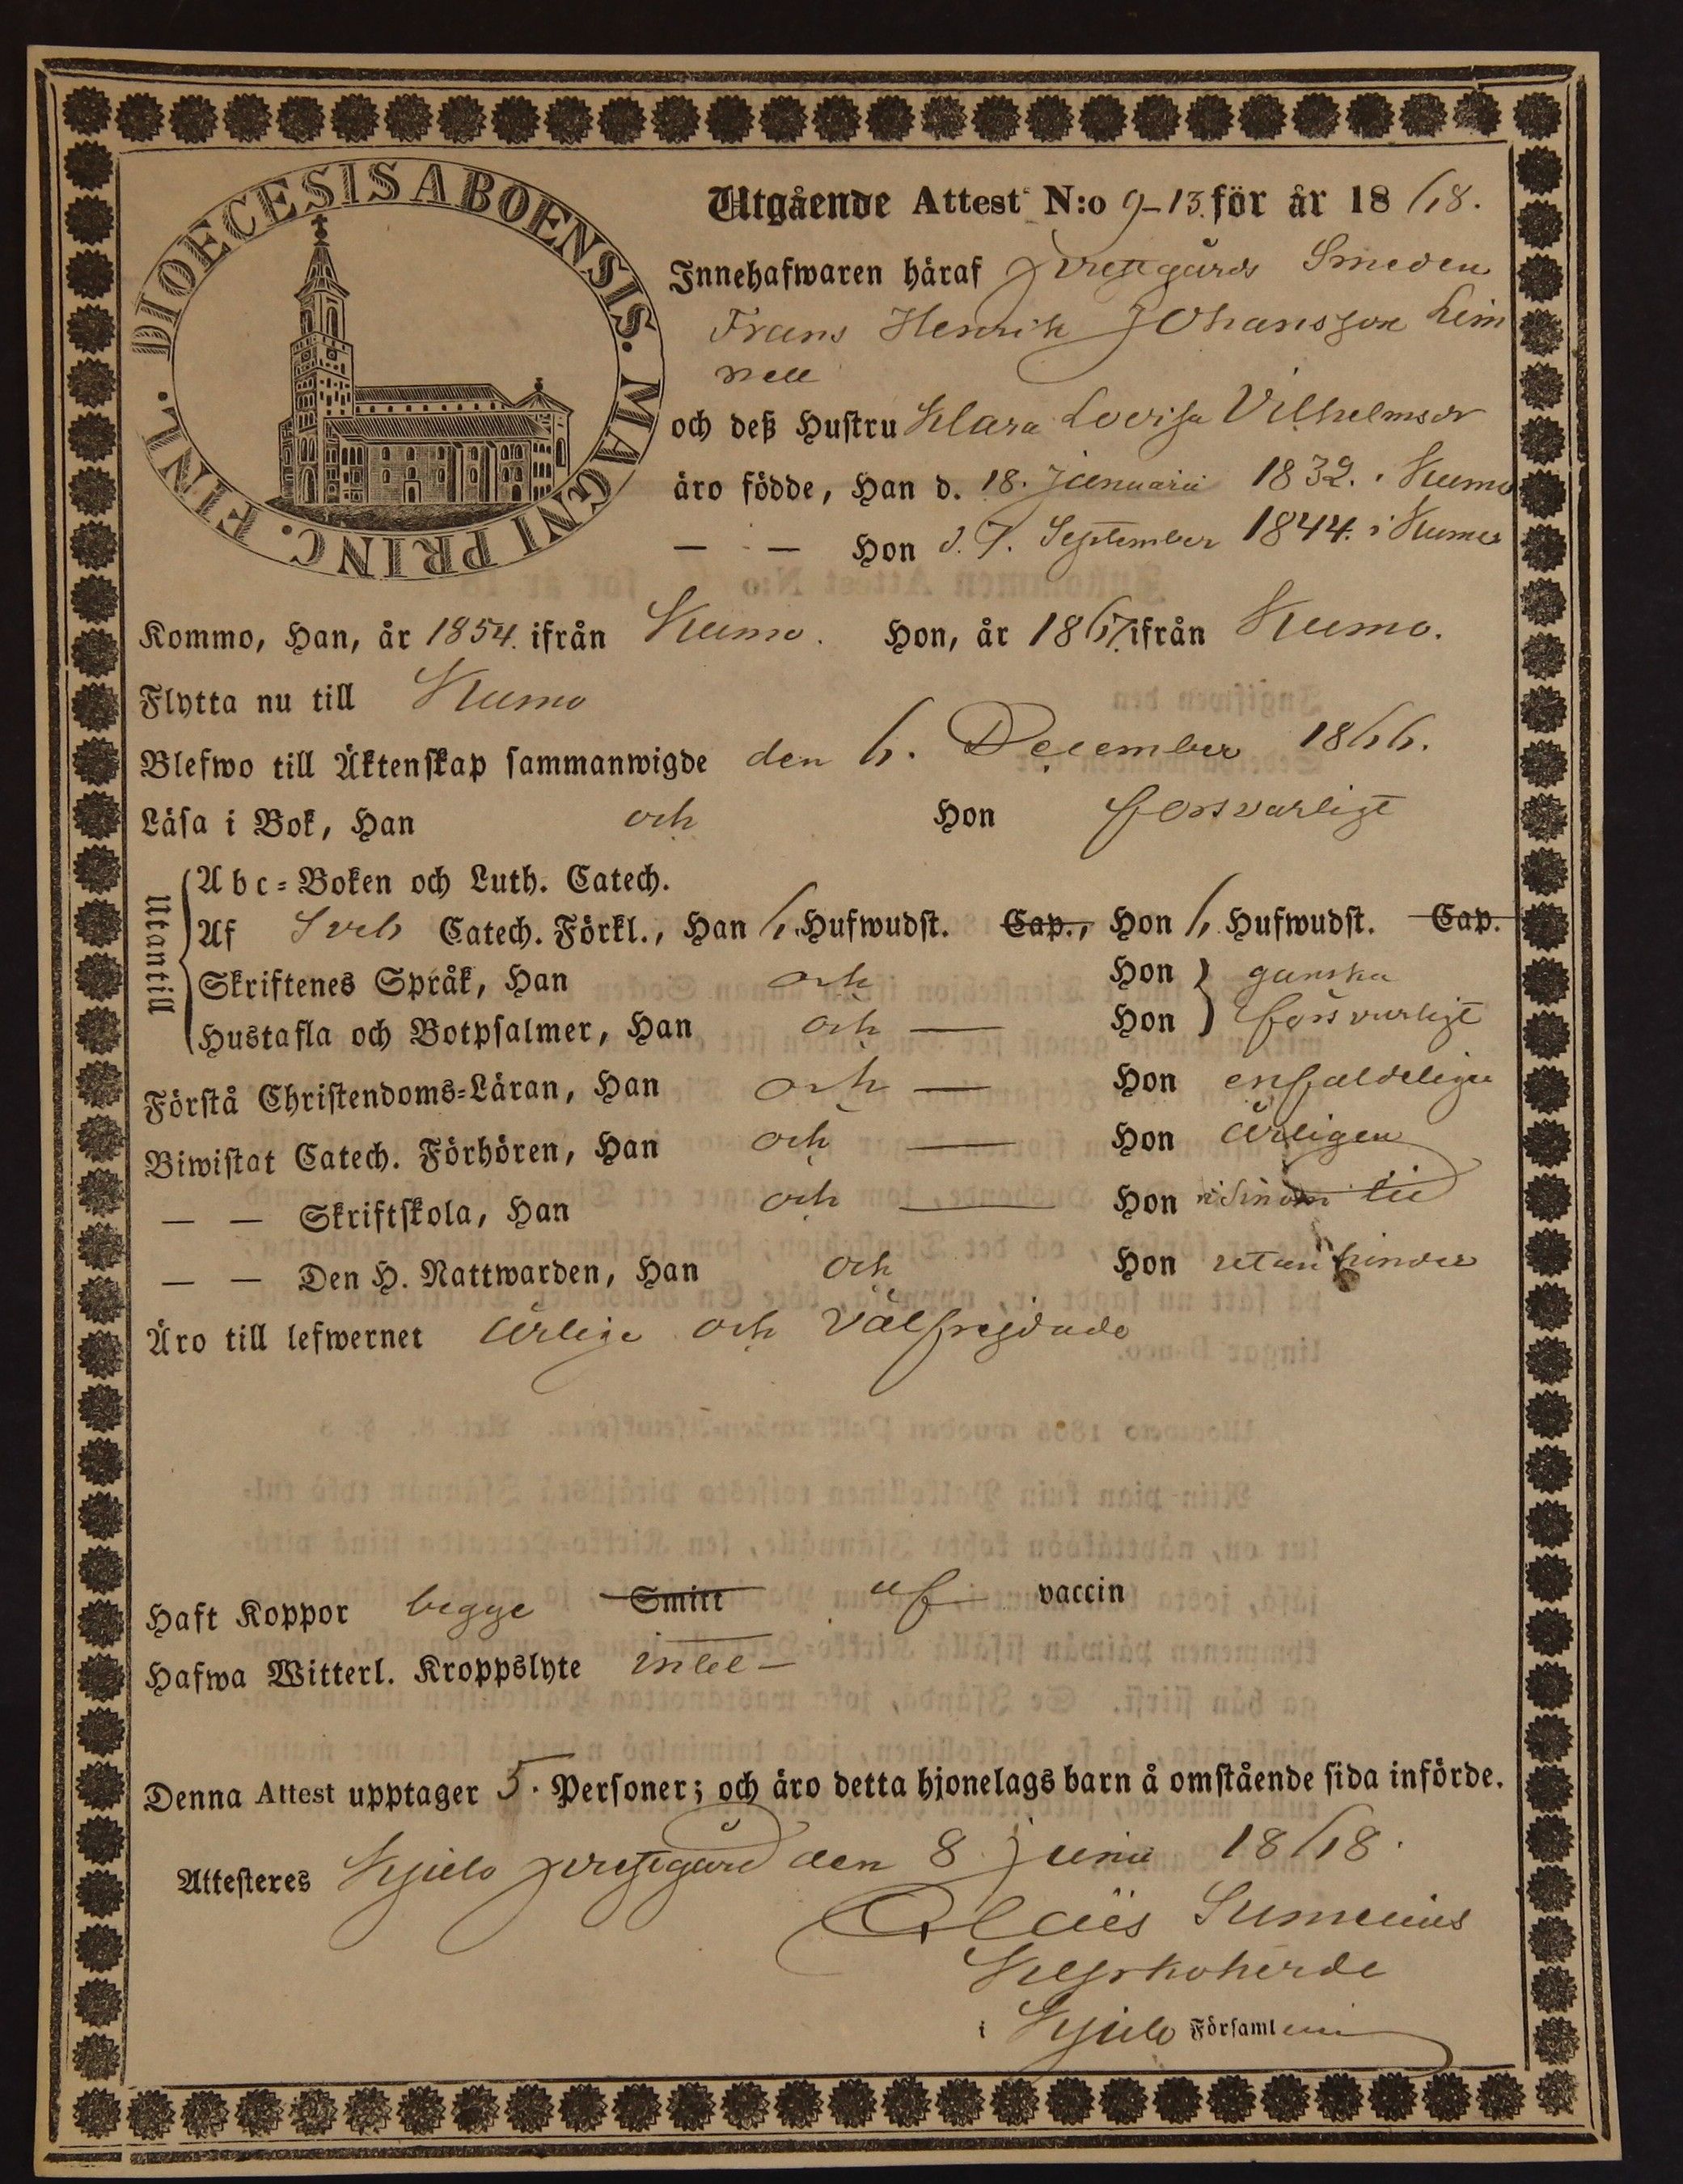 DIOECESIS ABOENSIS. MAGNI PRINC. FINL.
Utgående Attest N:o 9-13. för år 1868.
Innehafwaren häraf prestgårds Smeden
Frans Henrik Johansson Lim
nell
och deß Hustru Klara Lovisa Vilhelmsdr
äro födde, Han d. 18. Januarii 1832. i Kumo
— — Hon d. 7. September 1844. i Kumo
Kommo, Han, år 1854. ifrån Kumo. Hon, år 1867. ifrån Kumo.
Flytta nu till Kumo
Blefwo till Äktenskap sammanwigde den 6. December 1866.
Läsa i Bok, Han och Hon försvarligt
Utantill
Abc-Boken och Luth. Catech.
Af Sveb Catech. Förkl., Han 6. Hufwudst. Cap., Hon 6. Hufwudst. Cap.
Skriftenes Språk, Han och Hon ganska
Hustafla och Botpsalmer, Han och — Hon försvarligt
Förstå Christendoms-Läran, Han och — Hon enfaldeligen
Biwistat Catech. Förhören, Han och — Hon årligen
— — Skriftskola, Han och — Hon i sinom tid
— — Den H. Nattwarden, Han och Hon utan hinder
Äro till lefwernet ärliga och välfrejdade
Haft Koppor begge Smitt af vaccin
Hafwa Witterl. Kroppslyte intet —
Denna Attest upptager 5. Personer; och äro detta hjonelags barn å omstående sida införde.
Attesteres Kjulo prestgård den 8 Junii 1868.
Kyrkoherde
i Kjulo Församl